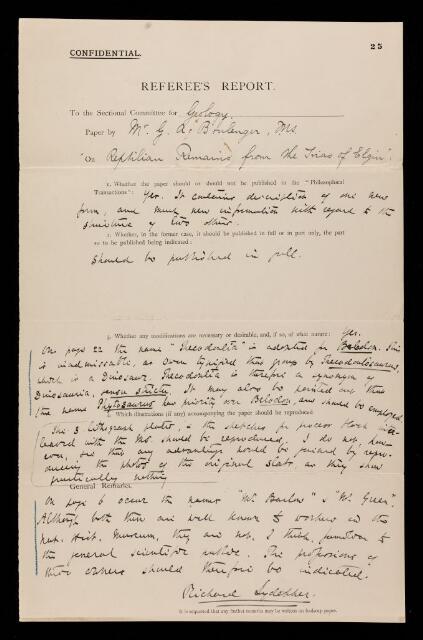 CONFIDENTIAL.
25
REFEREE'S REPORT.
To the Sectional Committee for Geology.
Paper by Mr. G. A. Boulenger, FRS
"On Reptilian Remains from the Trias of Elgin".
1. Whether the paper should or should not be published in the "Philosophical
Transactions": Yes. It contains description of one new
form, and much new information with regard to the
structure of two others.
2. Whether, in the former case, it should be published in full or in part only, the part
so to be published being indicated:
Should be published in full.
3. Whether any modifications are necessary or desirable, and, if so, of what nature: Yes.
On page 22 the name "Thecodontia" is adopted for Belodon. This
is inadmissable, as Owen typified this group by Thecodontosaurus,
which is a Dinosaur. Thecodontia is therefore a synonym of
Dinosauria, sensu stricto. It may also be pointed out that
the name Phytosaurus has priority over Belodon, and should be employed
4. Which illustrations (if any) accompanying the paper should be reproduced
The 3 lithograph plates, & the sketches for process block inter-
leaved with the MS. should be reproduced. I do not, how-
ever, see that any advantage would be gained by repro-
ducing the photos of the original slabs, as they show
practically nothing
General Remarks.
On page 6 occur the names "Mr. Barlow" & "Mr. Green".
Although both these are well known to workers in the
Nat. Hist. Museum, they are not, I think, familiar to
the general scientific public. The professions of
these workers should therefore be indicated.
Richard Lydekker.
It is requested that any further remarks may be written on foolscap paper.